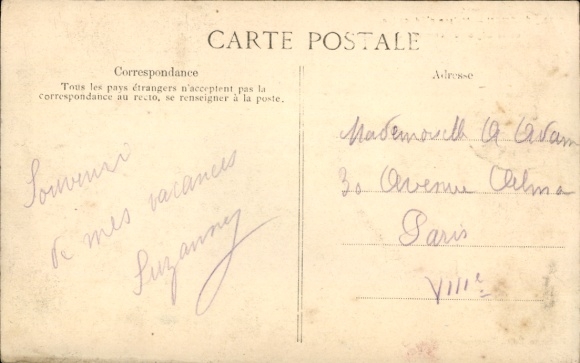 CARTE POSTALE
Correspondance
Tous les pays étrangers n'acceptent pas la
correspondance au recto, se renseigner à la poste.
Adresse
Souvenir
de mes vacances
Suzanne
Mademoiselle A Adam
30 Avenue Alma
Paris
VIIIe